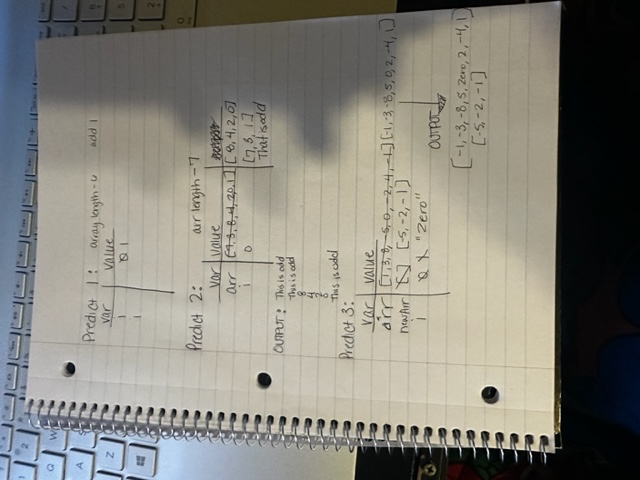 Predict 1: array length-6 add 1
Var Value
i 0 1
i
Predict 2: arr length-7
Var Value
arr [7,3,8,4,2,0,1] [8,4,2,0]
i 0 [7,3,1]
That is odd
OUTPUT: This is odd
This is odd
8
4
2
0
This is odd
Predict 3:
Var Value
arr [1,3,8,-5,0,-2,4,-1] [-1,-3,-8,5,0,2,-4,1]
newArr [] [-5,-2,-1]
i 0 1 "Zero"
OUTPUT
[-1,-3,-8,5,zero,2,-4,1]
[-5,-2,-1]